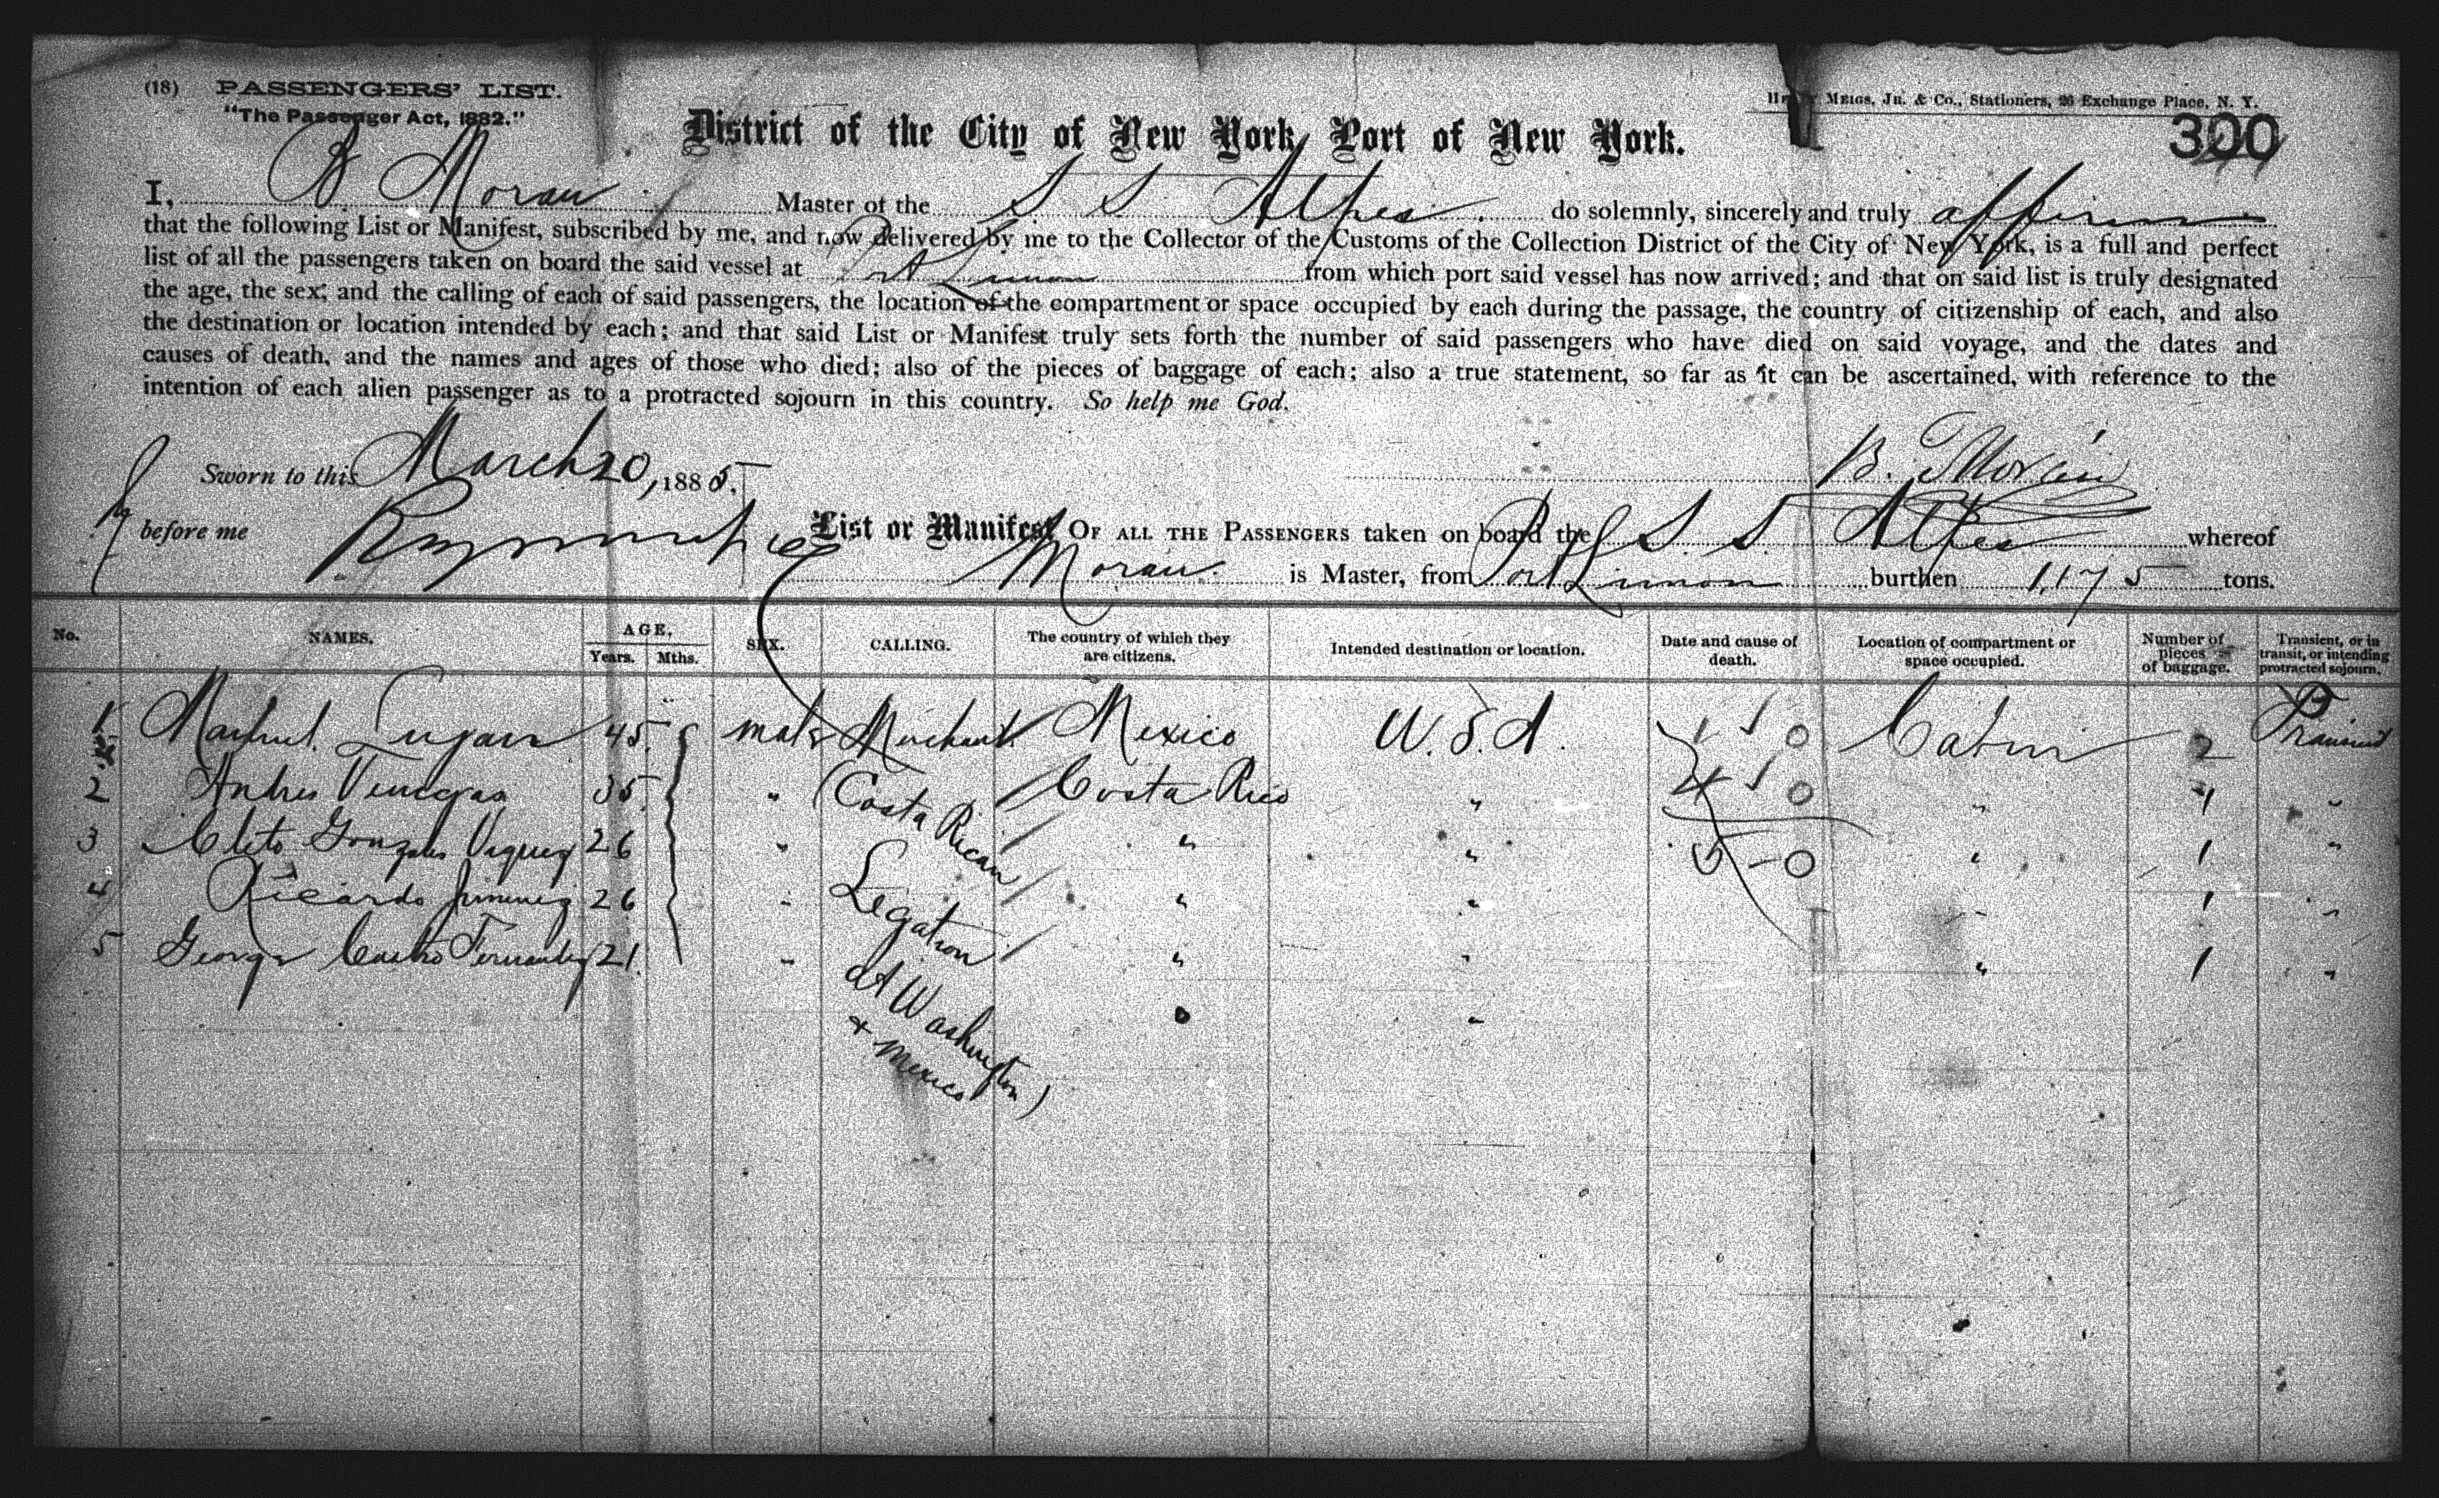 (18) PASSENGERS' LIST.
"The Passenger Act, 1882."
MEIGS, JR. & Co., Stationers, 26 Exchange Place, N. Y.
300
District of the City of New York, Port of New York.
I, B Moran Master of the S S Alpes do solemnly, sincerely and truly affirm
that the following List or Manifest, subscribed by me, and now delivered by me to the Collector of the Customs of the Collection District of the City of New York, is a full and perfect
list of all the passengers taken on board the said vessel at Port Limon from which port said vessel has now arrived; and that on said list is truly designated
the age, the sex, and the calling of each of said passengers, the location of the compartment or space occupied by each during the passage, the country of citizenship of each, and also
the destination or location intended by each; and that said List or Manifest truly sets forth the number of said passengers who have died on said voyage, and the dates and
causes of death, and the names and ages of those who died; also of the pieces of baggage of each; also a true statement, so far as it can be ascertained, with reference to the
intention of each alien passenger as to a protracted sojourn in this country. So help me God.
Sworn to this March 20, 1885. B. Moran
before me
List or Manifest OF ALL THE PASSENGERS taken on board the S. S. Alpes whereof
Moran is Master, from Port Limon burthen 1,175 tons.
No. NAMES. AGE, Years. Mths. SEX. CALLING. The country of which they are citizens. Intended destination or location. Date and cause of death. Location of compartment or space occupied. Number of pieces of baggage. Transient, or in transit, or intending protracted sojourn.
1 Manuel Lujan 45. male Merchant Mexico U. S. A. 1 1 0 Cabin 2 Transient
2 Andres Venegas 35. " (Costa Rican Costa Rica " 4 1 0 " 1 "
3 Cleto Gonzales Vaquez 26 " " " 5 - 0 " 1 "
4 Ricardo Jimenez 26 " Legation " " " 1 "
5 George Castro Fernandez 21. " " " " 1 "
at Washington " "
& Mexico)